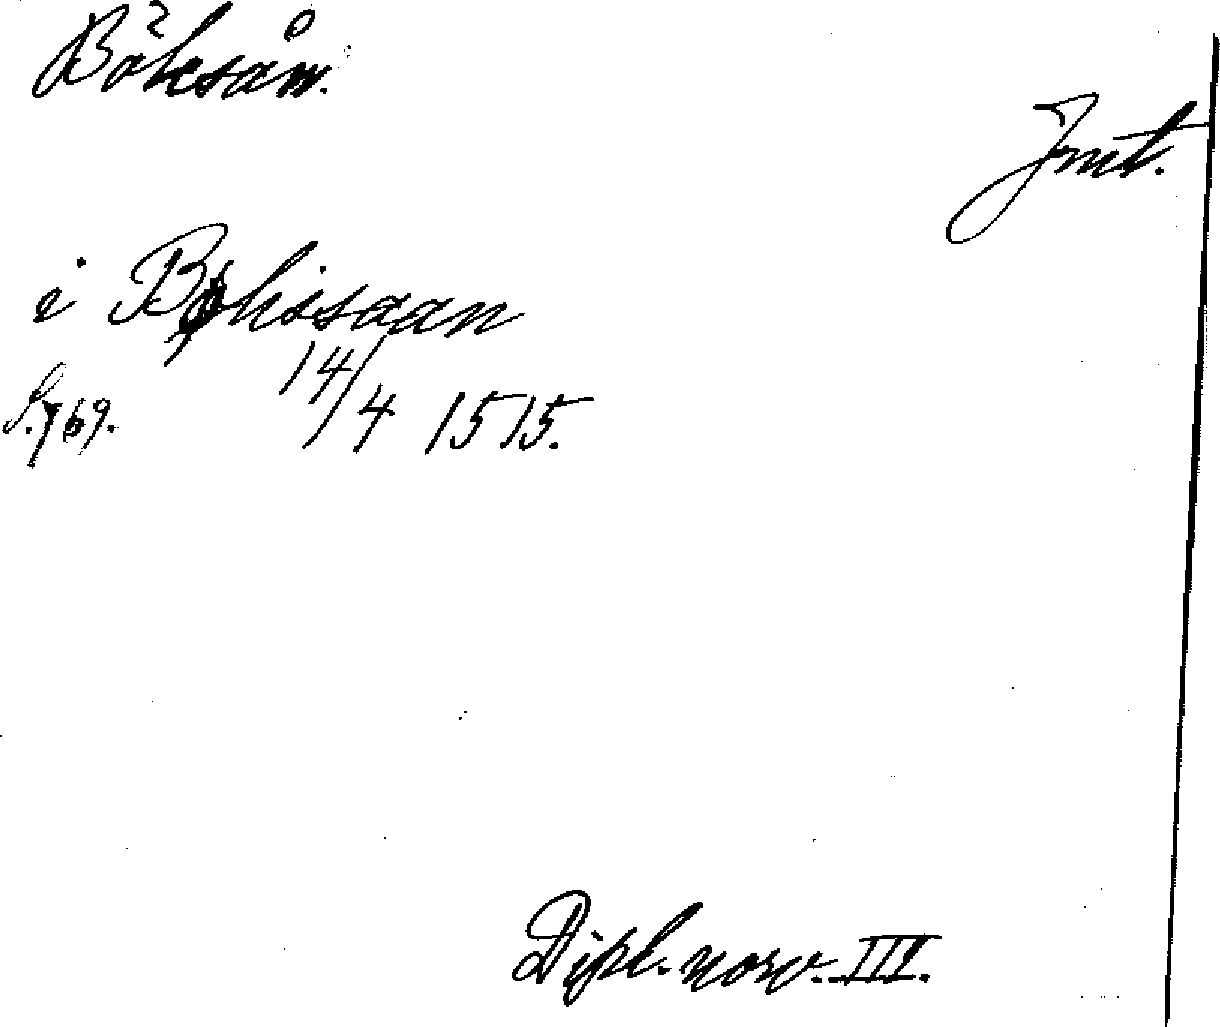 Böksån.
Jmt.
i Bøkissaan
S. 769. 14/4 1515.
Dipl. norv. III.